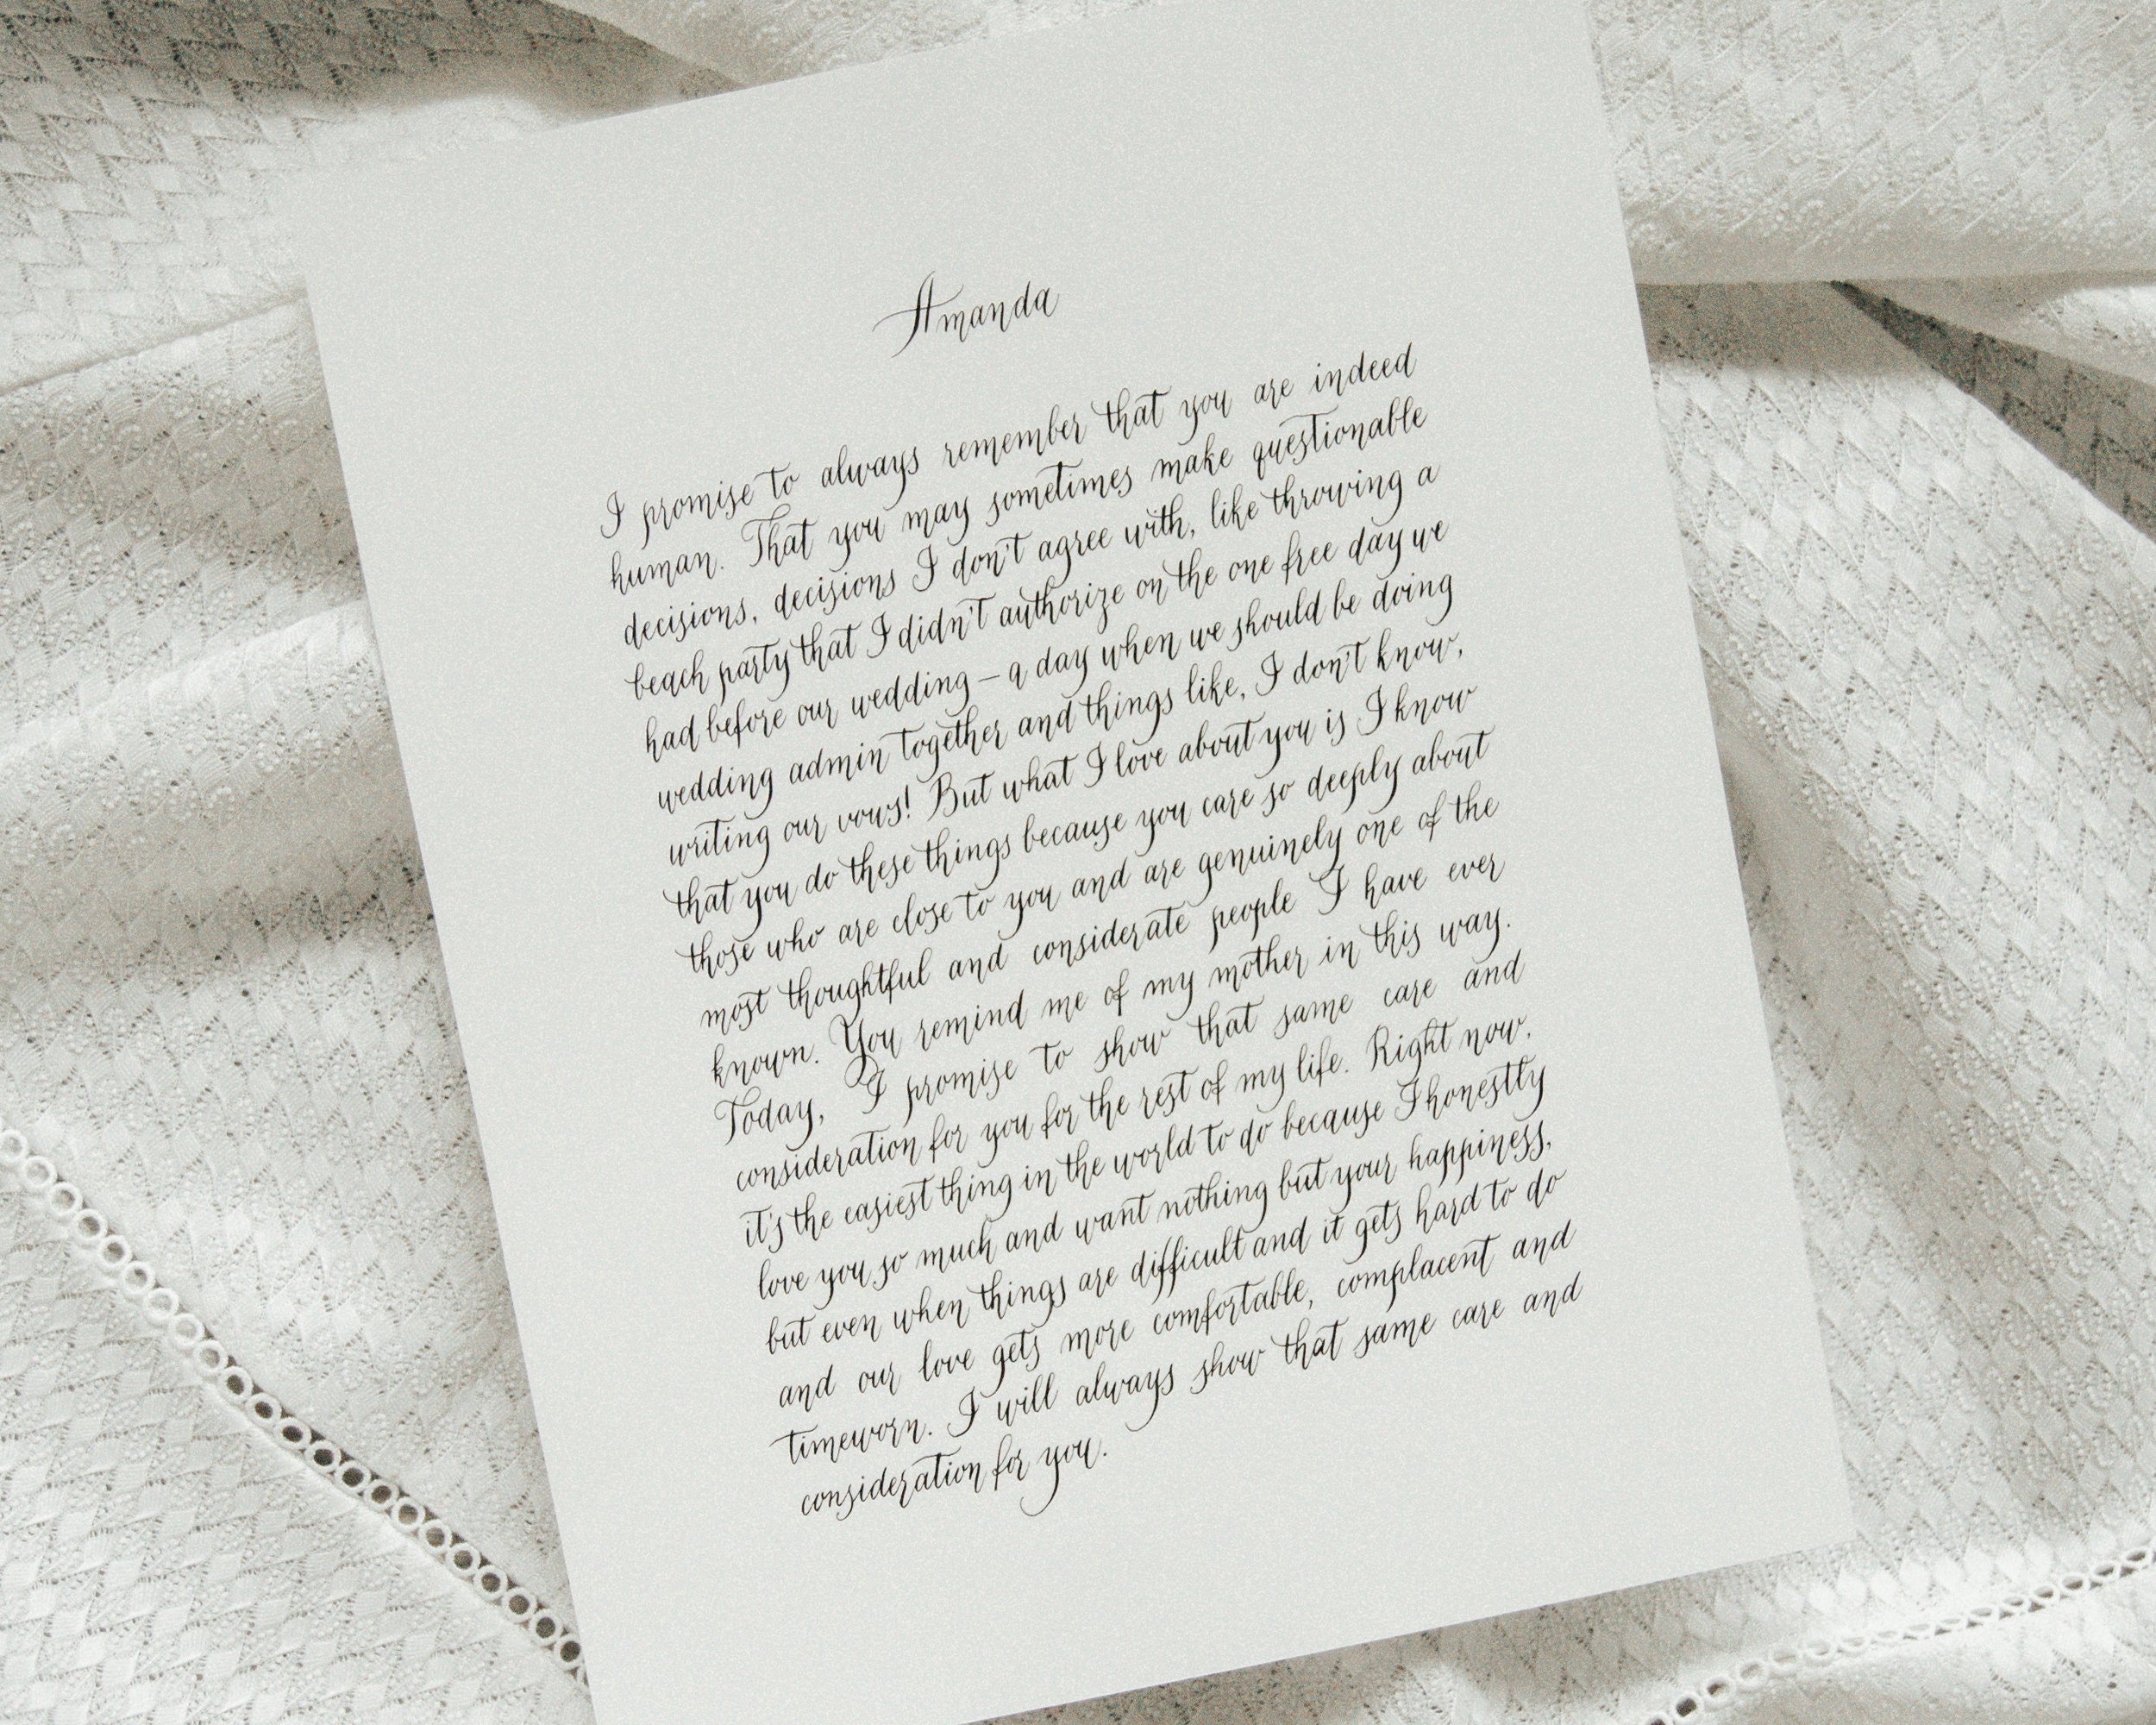 Amanda
I promise to always remember that you are indeed
human. That you may sometimes make questionable
decisions, decisions I don't agree with, like throwing a
beach party that I didn't authorize on the one free day we
had before our wedding – a day when we should be doing
wedding admin together and things like, I don't know,
writing our vows! But what I love about you is I know
that you do these things because you care so deeply about
those who are close to you and are genuinely one of the
most thoughtful and considerate people I have ever
known. You remind me of my mother in this way.
Today, I promise to show that same care and
consideration for you for the rest of my life. Right now,
it's the easiest thing in the world to do because I honestly
love you so much and want nothing but your happiness,
but even when things are difficult and it gets hard to do
and our love gets more comfortable, complacent and
timeworn. I will always show that same care and
consideration for you.